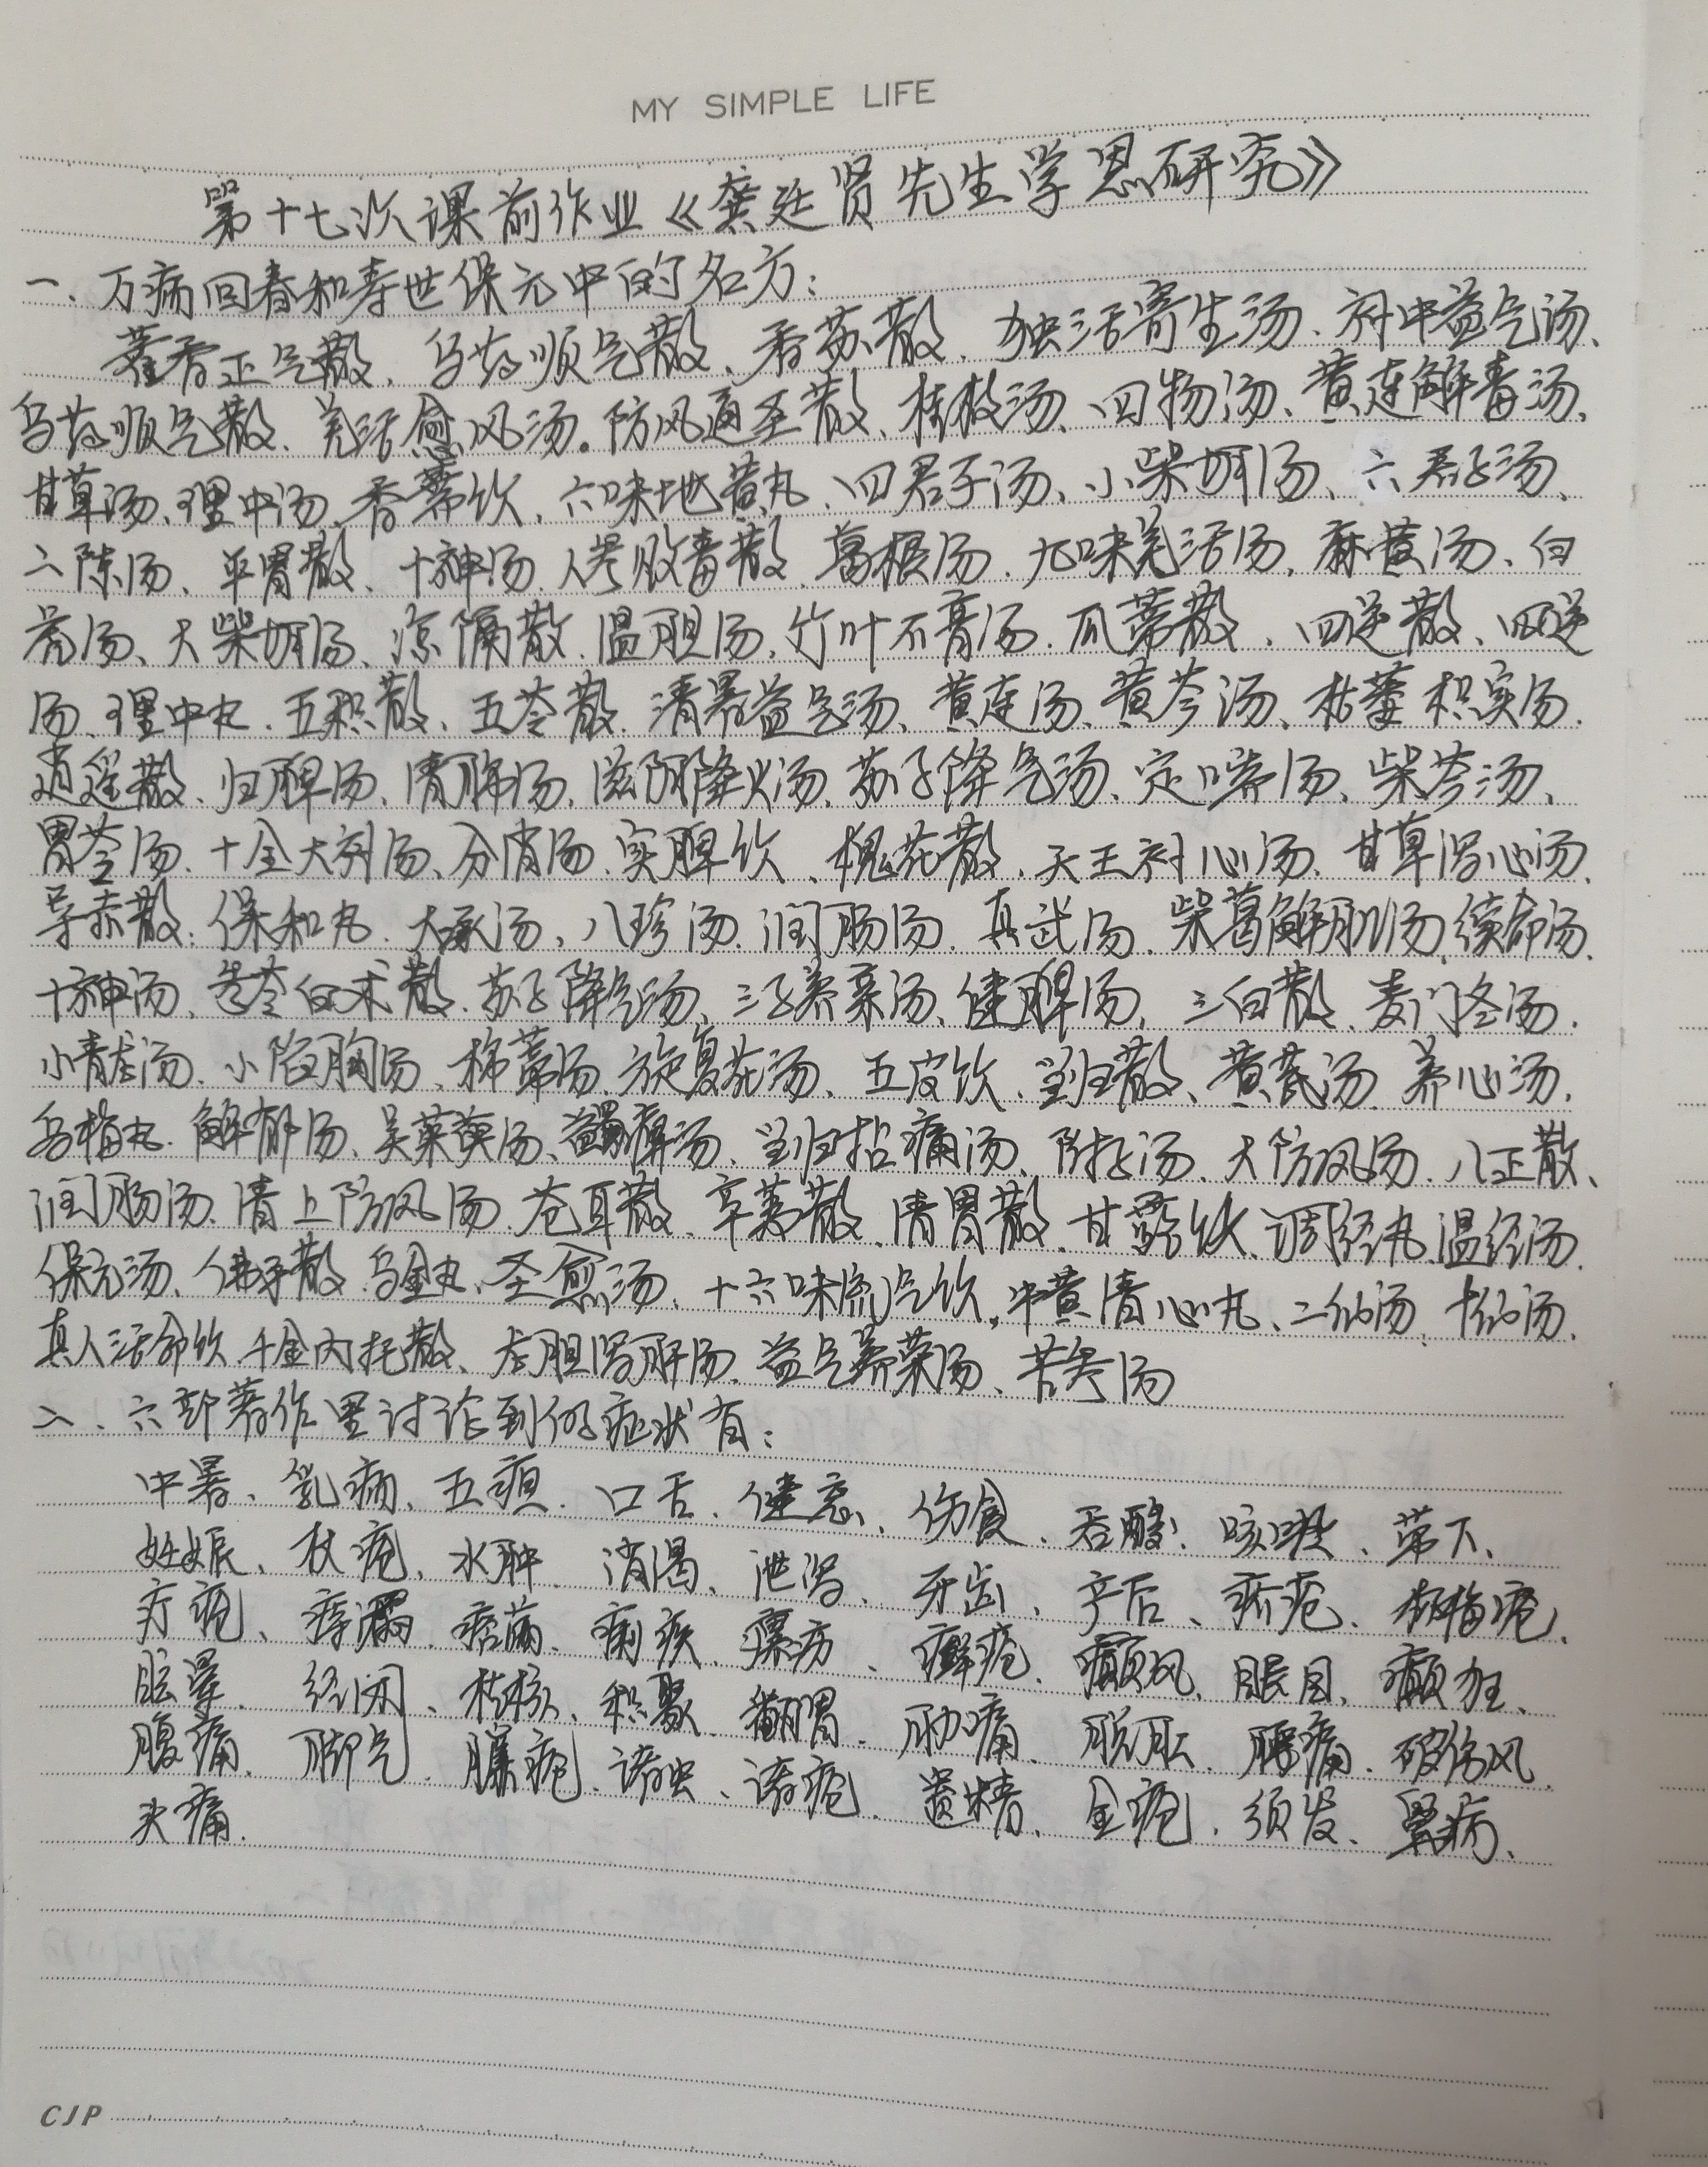 MY SIMPLE LIFE
第十七次课前作业《龚廷贤先生学思研究》
一、万病回春和寿世保元中的名方：
藿香正气散、乌药顺气散、香苏散、独活寄生汤、补中益气汤、
乌药顺气散、羌活愈风汤。防风通圣散、桂枝汤、四物汤、黄连解毒汤、
甘草汤、理中汤、香薷饮、六味地黄丸、四君子汤、小柴胡汤、六君子汤、
二陈汤、平胃散、十神汤、人参败毒散、葛根汤、九味羌活汤、麻黄汤、白
虎汤、大柴胡汤、凉膈散、温胆汤、竹叶石膏汤、瓜蒂散、四逆散、四逆
汤、理中丸、五积散、五苓散、清暑益气汤、黄连汤、黄芩汤、枯蒌枳实汤、
逍遥散、归脾汤、清肺汤、滋阴降火汤、苏子降气汤、定喘汤、柴苓汤、
胃苓汤、十全大补汤、分消汤、实脾饮、槐花散、天王补心汤、甘草泻心汤、
导赤散、保和丸、大承汤、八珍汤、润肠汤、真武汤、柴葛解肌汤、续命汤、
十神汤、参苓白术散、苏子降气汤、三子养亲汤、健脾汤、三白散、麦门冬汤、
小青龙汤、小陷胸汤、柿蒂汤、旋复花汤、五皮饮、当归散、黄芪汤、养心汤、
乌梅丸、解郁汤、吴茱萸汤、蠲痹汤、当归拈痛汤、附子汤、大防风汤、八正散、
润肠汤、清上防风汤、苍耳散、辛荑散、清胃散、甘露饮、调经丸、温经汤、
保元汤、佛手散、乌金丸、圣愈汤、十六味流气饮、牛黄清心丸、二仙汤、十仙汤、
真人活命饮、千金内托散、龙胆泻肝汤、益气养荣汤、苦参汤
二、六部著作里讨论到的症状有：
中暑、乳病、五疸、口舌、健忘、伤食、吞酸、咳、带下、
妊娠、杖疮、水肿、消渴、泄泻、牙齿、产后、疥疮、杨梅疮、
疔疮、痔漏、痞满、痢疾、瘰疬、癣疮、癜风、眼目、癫狂、
眩晕、经闭、结核、积聚、翻胃、胁痛、脱肛、腰痛、破伤风、
腹痛、脚气、臁疮、诸虫、诸疮、遗精、金疮、须发、鼻病、
头痛、
CJP